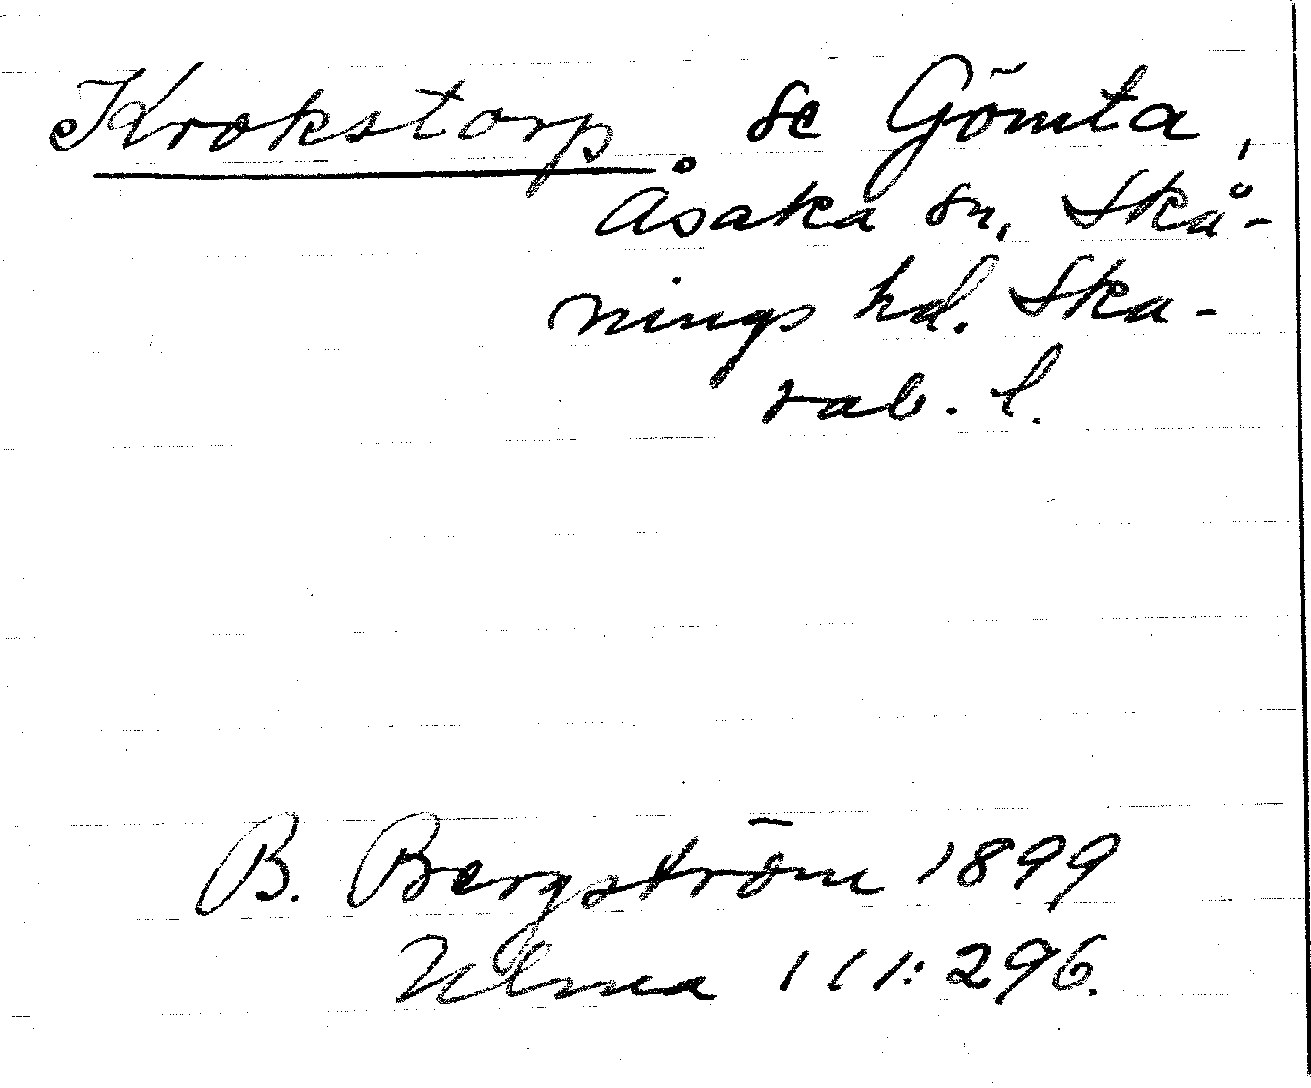 Krokstorp se Gömta,
Åsaka sn, Skå-
nings hd. Ska-
rab. l.
B. Bergström 1899
Ulma 111:296.